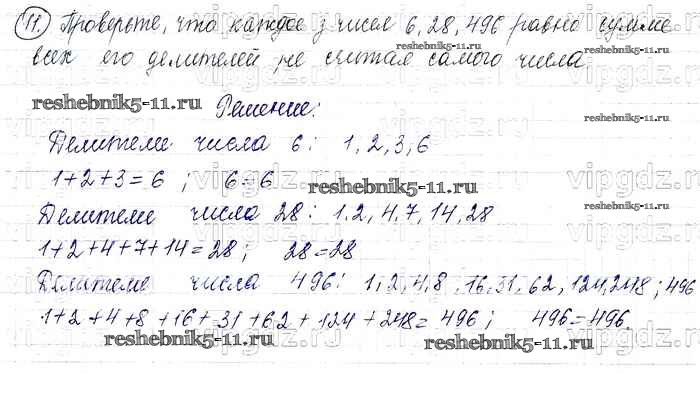 11. Проверьте, что каждое з чисел 6, 28, 496 равно сумме
всех его делителей, не считая самого числа
reshebnik5-11.ru
reshebnik5-11.ru
reshebnik5-11.ru
Решение:
Делители числа 6: 1, 2, 3, 6
reshebnik5-11.ru
1+2+3=6; 6=6
reshebnik5-11.ru
Делители числа 28: 1, 2, 4, 7, 14, 28
reshebnik5-11.ru
1+2+4+7+14=28; 28=28
Делители числа 496: 1, 2, 4, 8, 16, 31, 62, 124, 248; 496
1+2+4+8+16+31+62+124+248=496; 496=496.
reshebnik5-11.ru
reshebnik5-11.ru
vipgdz.ru